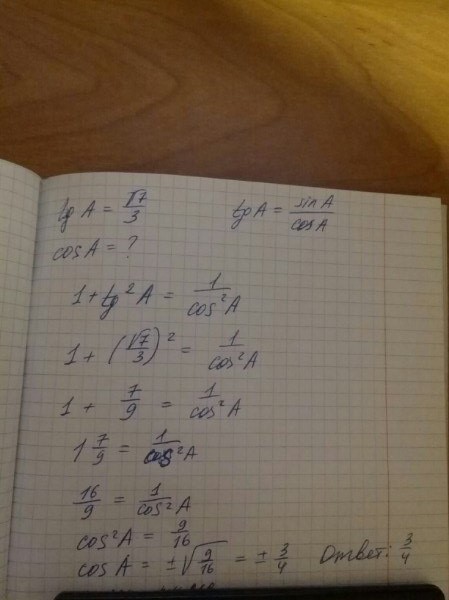 tg A = √7/3 tg A = sin A/cos A
cos A = ?
1 + tg² A = 1/cos² A
1 + (√7/3)² = 1/cos² A
1 + 7/9 = 1/cos² A
1 7/9 = 1/cos² A
16/9 = 1/cos² A
cos² A = 9/16
cos A = ±√9/16 = ± 3/4 Ответ: 3/4